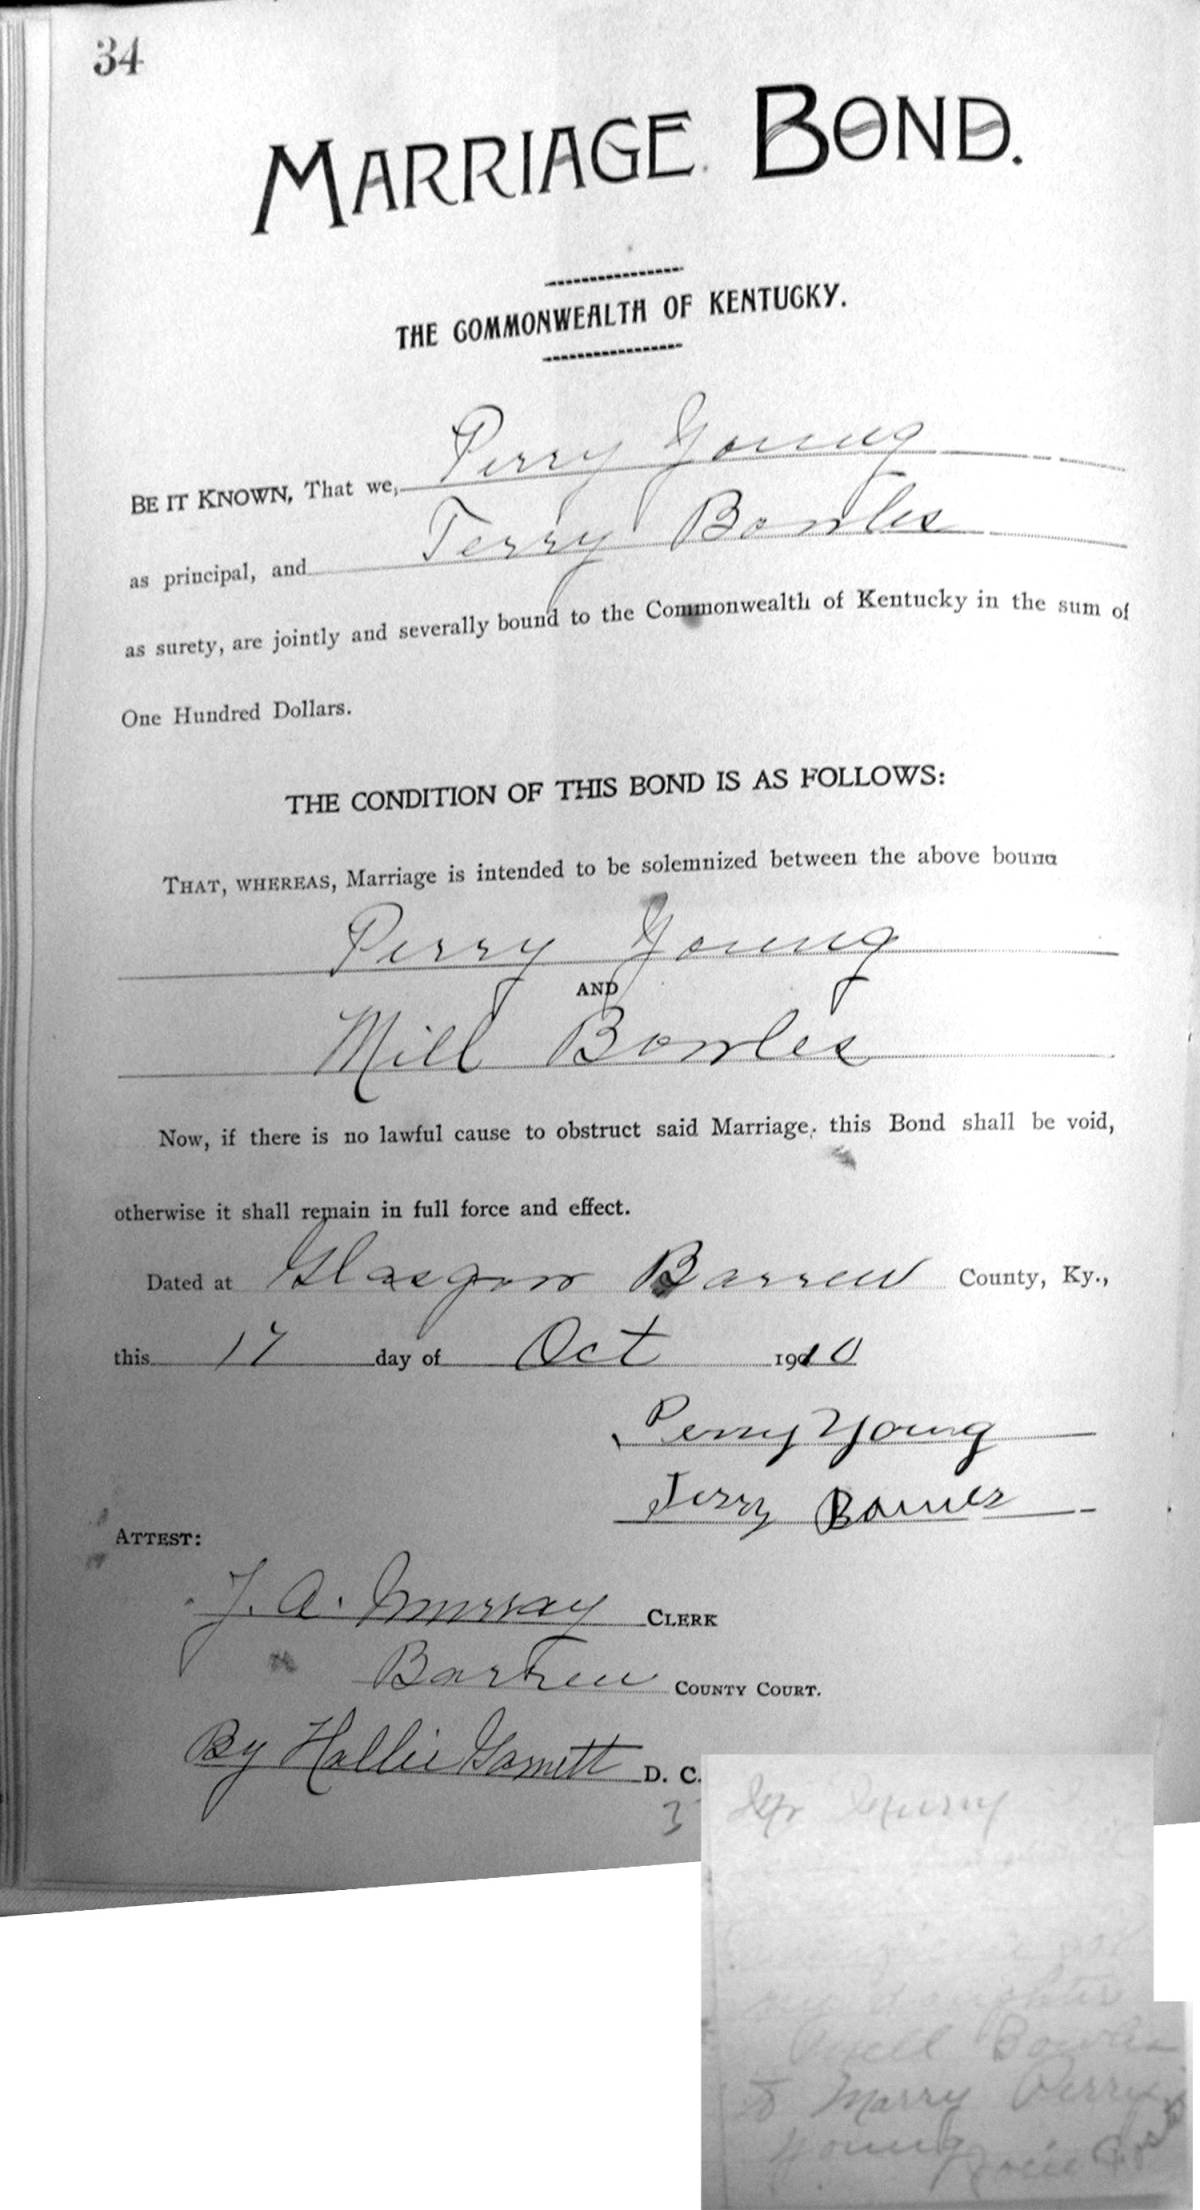 34
MARRIAGE BOND.
THE COMMONWEALTH OF KENTUCKY.
BE IT KNOWN, That we, Perry Young
as principal, and Terry Bowles
as surety, are jointly and severally bound to the Commonwealth of Kentucky in the sum of
One Hundred Dollars.
THE CONDITION OF THIS BOND IS AS FOLLOWS:
THAT, WHEREAS, Marriage is intended to be solemnized between the above bound
Perry Young
AND
Mill Bowles
Now, if there is no lawful cause to obstruct said Marriage, this Bond shall be void,
otherwise it shall remain in full force and effect.
Dated at Glasgow Barren County, Ky.,
this 17 day of Oct 1910
Perry Young
Jerry Bowles
ATTEST:
J. A. Murray CLERK
Barren COUNTY COURT.
By Hallie Garnett D. C.
Mr Murry
my daughter
Bowles
to Marry Perry
Young